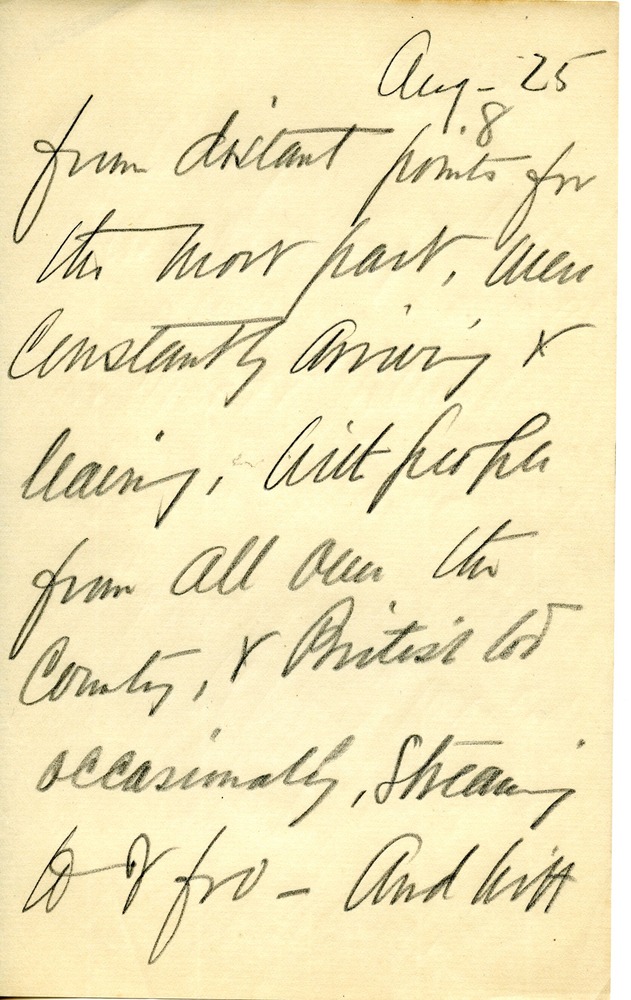 Aug - 25
8
from distant points for
the most part, men
Constantly arriving &
leaving, people
from all over the
County, & British
occasionally, streaming
to & fro - And with